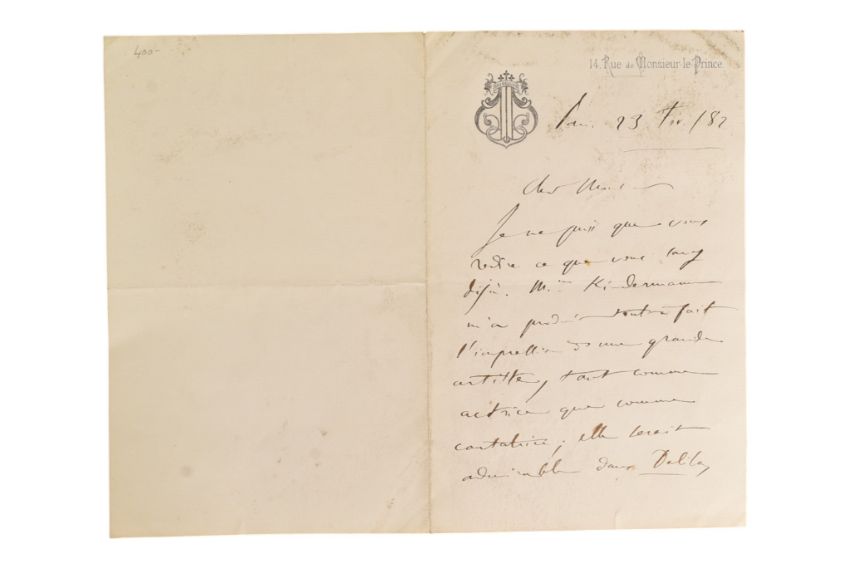 400-
14, Rue de Monsieur le Prince.
23 /82
Cher Monsieur
Je ne puis que vous
redire ce que vous savez
déjà. Mme Kindermann
m'a produit tout à fait
l'impression d'une grande
artiste, tant comme
actrice que comme
cantatrice; elle serait
admirable dans Dalila,